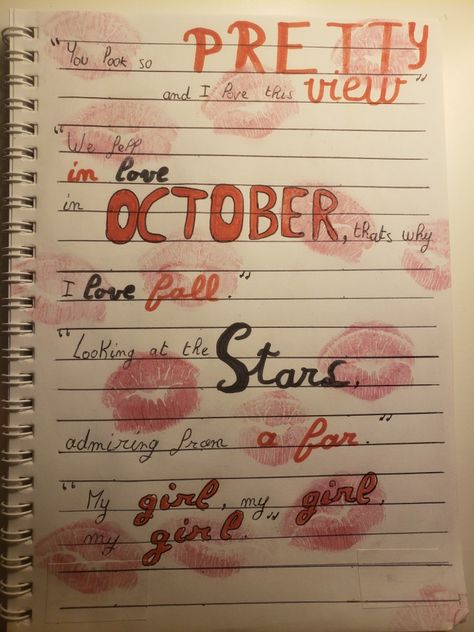 "You look so PRETTY
and I love this view"
"We fell
in love
in OCTOBER, thats why
I love fall."
"Looking at the Stars,
admiring from a far."
"My girl, my girl,
my girl."